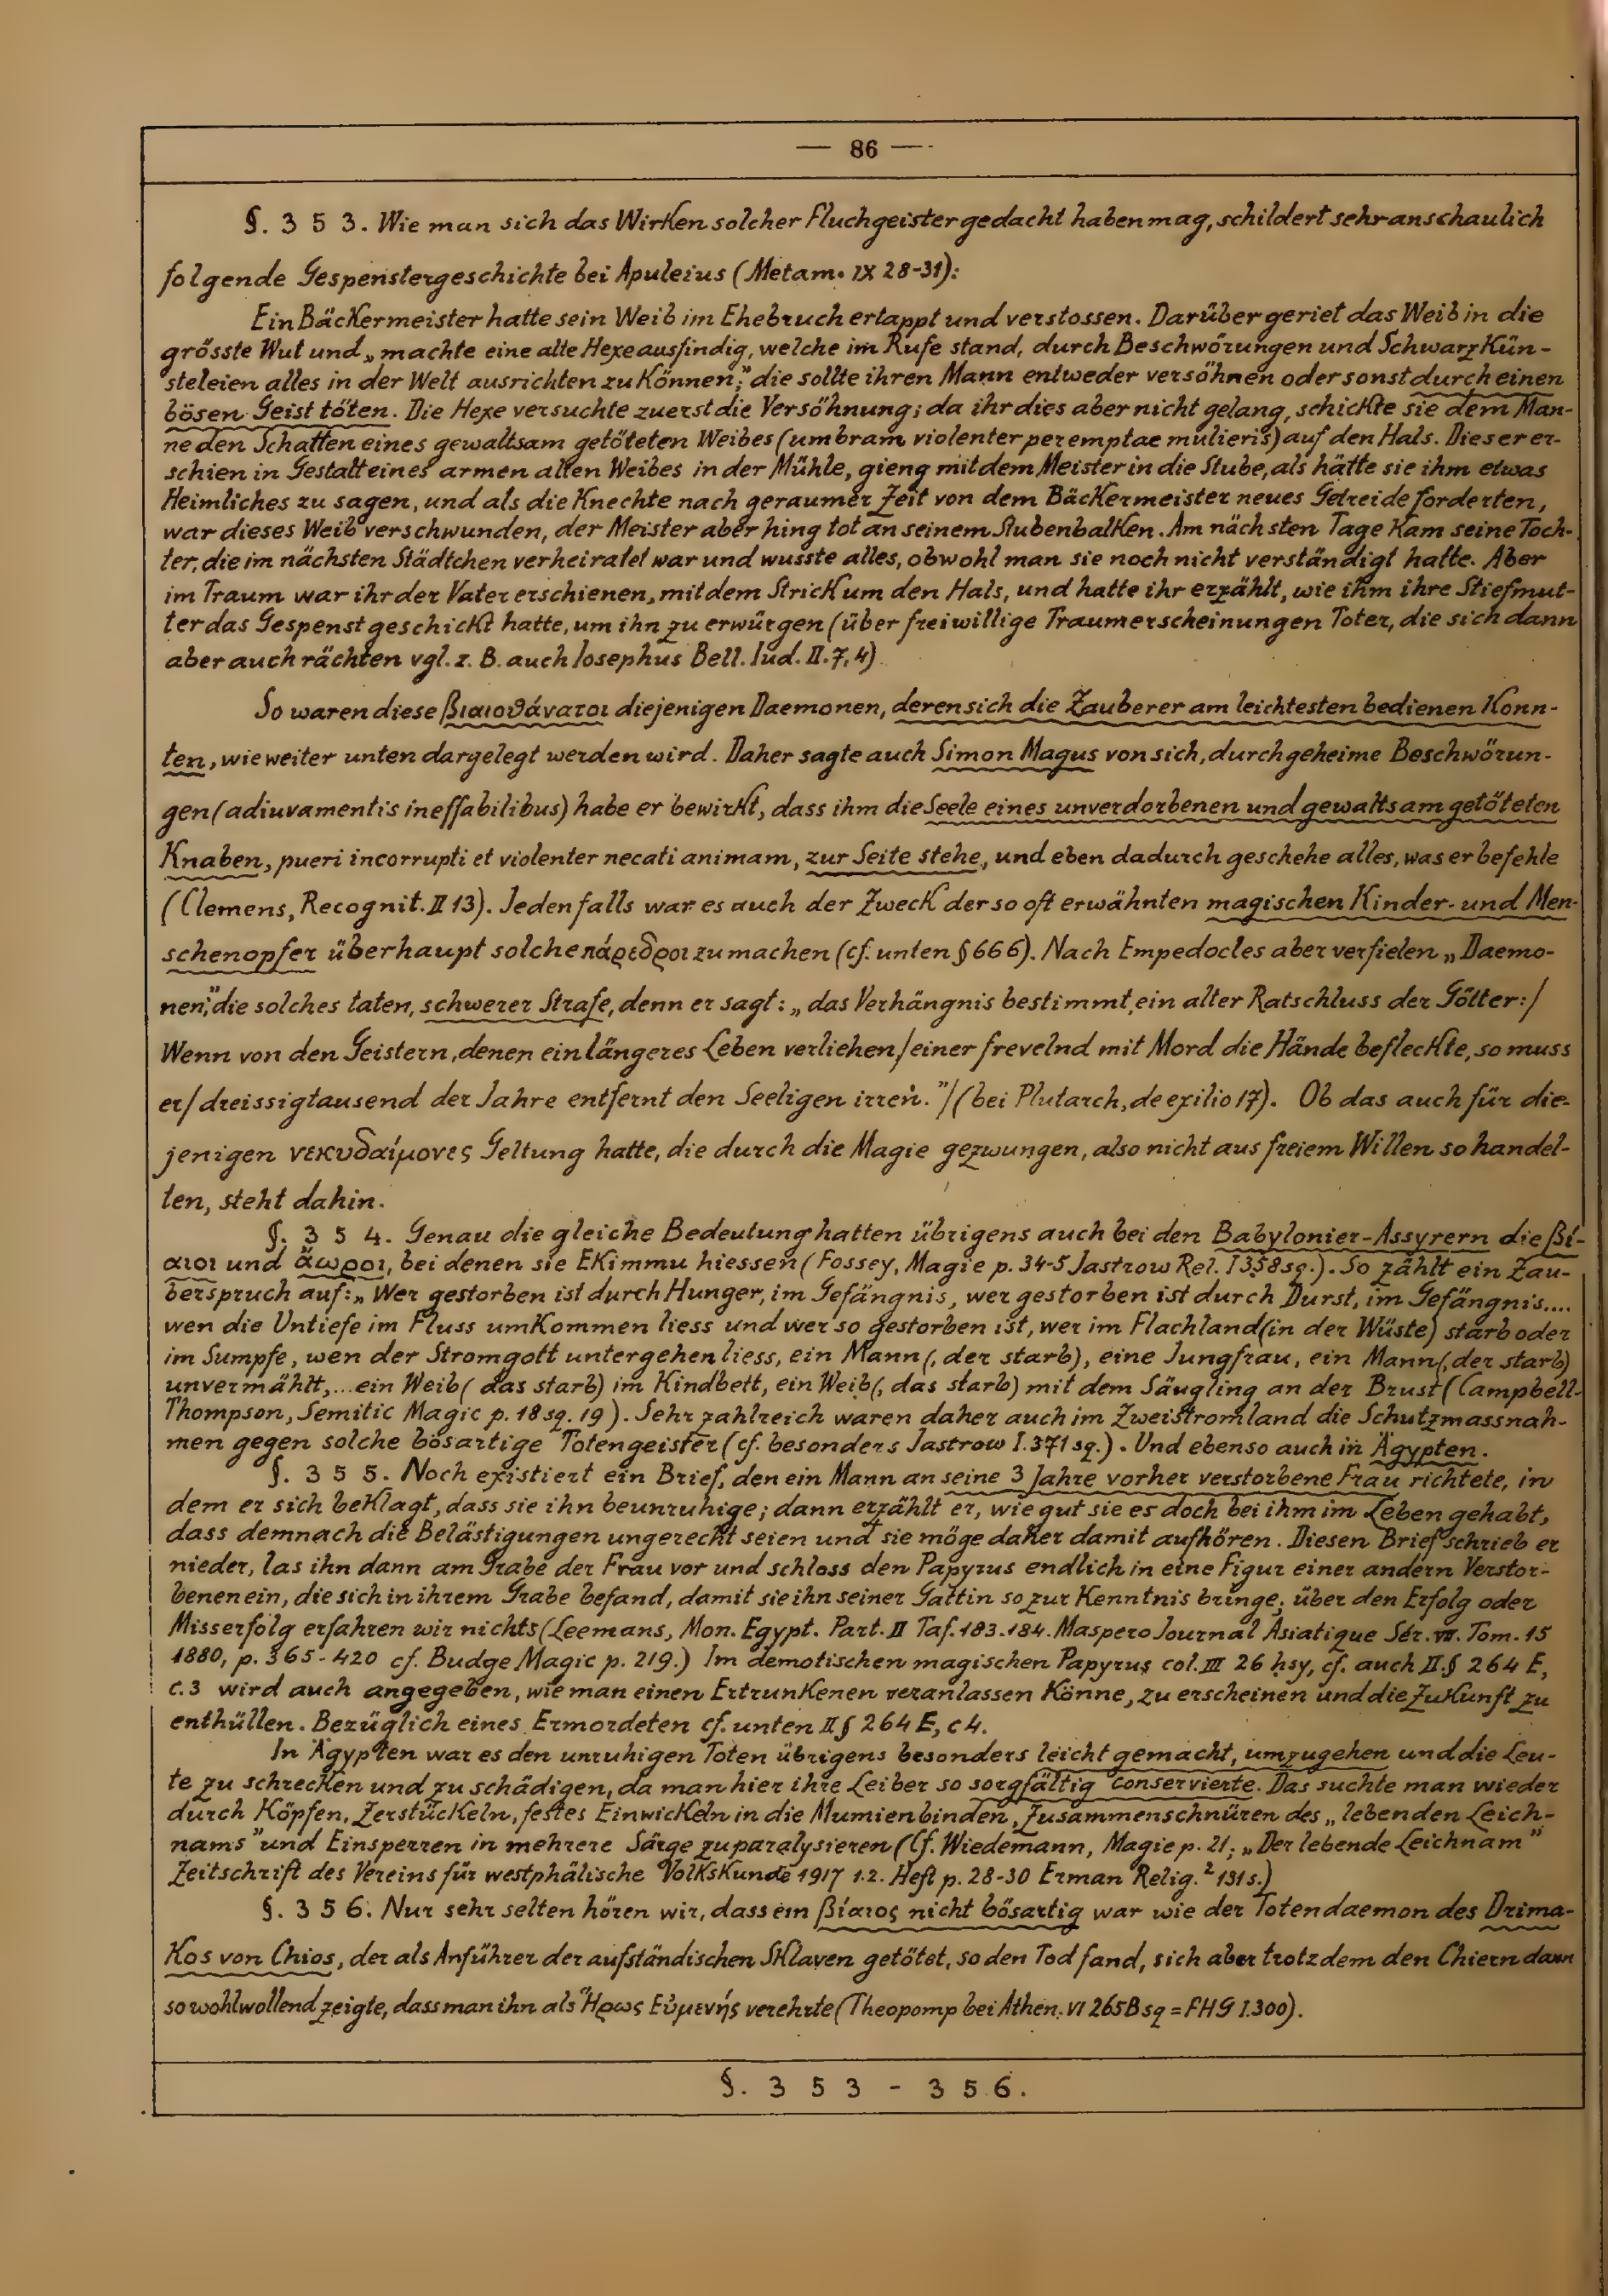 — 86 —
§. 3 5 3. Wie man sich das Wirken solcher Fluchgeister gedacht haben mag, schildert sehr anschaulich
folgende Gespenstergeschichte bei Apuleius (Metam. IX 28-31):
Ein Bäckermeister hatte sein Weib im Ehebruch ertappt und verstossen. Darüber geriet das Weib in die
grösste Wut und „machte eine alte Hexe ausfindig, welche im Rufe stand, durch Beschwörungen und Schwarzkün-
steleien alles in der Welt ausrichten zu können;" die sollte ihren Mann entweder versöhnen oder sonst durch einen
bösen Geist töten. Die Hexe versuchte zuerst die Versöhnung; da ihr dies aber nicht gelang, schickte sie dem Man-
ne den Schatten eines gewaltsam getöteten Weibes (umbram violenter peremptae mulieris) auf den Hals. Dieser er-
schien in Gestalt eines armen alten Weibes in der Mühle, gieng mit dem Meister in die Stube, als hätte sie ihm etwas
Heimliches zu sagen, und als die Knechte nach geraumer Zeit von dem Bäckermeister neues Getreide forderten,
war dieses Weib verschwunden, der Meister aber hing tot an seinem Stubenbalken. Am nächsten Tage kam seine Toch-
ter, die im nächsten Städtchen verheiratet war und wusste alles, obwohl man sie noch nicht verständigt hatte. Aber
im Traum war ihr der Vater erschienen, mit dem Strick um den Hals, und hatte ihr erzählt, wie ihm ihre Stiefmut-
ter das Gespenst geschickt hatte, um ihn zu erwürgen (über freiwillige Traumerscheinungen Toter, die sich dann
aber auch rächten vgl. z. B. auch Iosephus Bell. Iud. II. 7, 4).
So waren diese βιαιοθάνατοι diejenigen Daemonen, deren sich die Zauberer am leichtesten bedienen konn-
ten, wie weiter unten dargelegt werden wird. Daher sagte auch Simon Magus von sich, durch geheime Beschwörun-
gen (adiuvamentis ineffabilibus) habe er bewirkt, dass ihm die Seele eines unverdorbenen und gewaltsam getöteten
Knaben, pueri incorrupti et violenter necati animam, zur Seite stehe, und eben dadurch geschehe alles, was er befehle
(Clemens, Recognit. II 13). Jedenfalls war es auch der Zweck der so oft erwähnten magischen Kinder- und Men-
schenopfer überhaupt solche πάρεδροι zu machen (cf. unten § 666). Nach Empedocles aber verfielen „Daemo-
nen," die solches taten, schwerer Strafe, denn er sagt: „das Verhängnis bestimmt, ein alter Ratschluss der Götter:/
Wenn von den Geistern, denen ein längeres Leben verliehen/einer frevelnd mit Mord die Hände befleckte, so muss
er/dreissigtausend der Jahre entfernt den Seeligen irren."/(bei Plutarch, de exilio 17). Ob das auch für die-
jenigen νεκυδαίμονες Geltung hatte, die durch die Magie gezwungen, also nicht aus freiem Willen so handel-
ten, steht dahin.
§. 3 5 4. Genau die gleiche Bedeutung hatten übrigens auch bei den Babylonier-Assyrern die βί-
αιοι und ἄωροι, bei denen sie Ekimmu hiessen (Fossey, Magie p. 34-5 Jastrow Rel. I 358 sq.). So zählt ein Zau-
berspruch auf: „Wer gestorben ist durch Hunger, im Gefängnis, wer gestorben ist durch Durst, im Gefängnis....
wen die Untiefe im Fluss umkommen liess und wer so gestorben ist, wer im Flachland (in der Wüste) starb oder
im Sumpfe, wen der Stromgott untergehen liess, ein Mann (, der starb), eine Jungfrau, ein Mann (, der starb)
unvermählt,...ein Weib (das starb) im Kindbett, ein Weib (, das starb) mit dem Säugling an der Brust (Campbell-
Thompson, Semitic Magic p. 18 sq. 19). Sehr zahlreich waren daher auch im Zweistromland die Schutzmassnah-
men gegen solche bösartige Totengeister (cf. besonders Jastrow I. 371 sq.). Und ebenso auch in Ägypten.
§. 3 5 5. Noch existiert ein Brief, den ein Mann an seine 3 Jahre vorher verstorbene Frau richtete, in
dem er sich beklagt, dass sie ihn beunruhige; dann erzählt er, wie gut sie es doch bei ihm im Leben gehabt,
dass demnach die Belästigungen ungerecht seien und sie möge daher damit aufhören. Diesen Brief schrieb er
nieder, las ihn dann am Grabe der Frau vor und schloss den Papyrus endlich in eine Figur einer andern Verstor-
benen ein, die sich in ihrem Grabe befand, damit sie ihn seiner Gattin so zur Kenntnis bringe; über den Erfolg oder
Misserfolg erfahren wir nichts (Leemans, Mon. Egypt. Part. II Taf. 183. 184. Maspero Journal Asiatique Sér. VII. Tom. 15
1880, p. 365-420 cf. Budge Magic p. 219.) Im demotischen magischen Papyrus col. III 26 hsy, cf. auch II. § 264 E,
c. 3 wird auch angegeben, wie man einen Ertrunkenen veranlassen könne, zu erscheinen und die Zukunft zu
enthüllen. Bezüglich eines Ermordeten cf. unten II § 264 E, c 4.
In Ägypten war es den unruhigen Toten übrigens besonders leicht gemacht, umzugehen und die Leu-
te zu schrecken und zu schädigen, da man hier ihre Leiber so sorgfältig conservierte. Das suchte man wieder
durch Köpfen, Zerstückeln, festes Einwickeln in die Mumienbinden, Zusammenschnüren des „lebenden Leich-
nams" und Einsperren in mehrere Särge zu paralysieren (Cf. Wiedemann, Magie p. 21; „Der lebende Leichnam"
Zeitschrift des Vereins für westphälische Volkskunde 1917 1.2. Heft p. 28-30 Erman Relig.² 131 s.)
§. 3 5 6. Nur sehr selten hören wir, dass ein βίαιος nicht bösartig war wie der Totendaemon des Drima-
kos von Chios, der als Anführer der aufständischen Sklaven getötet, so den Tod fand, sich aber trotzdem den Chiern dann
so wohlwollend zeigte, dass man ihn als Ἥρως Εὐμενής verehrte (Theopomp bei Athen. VI 265 B sq = FHG I. 300).
§. 3 5 3 - 3 5 6.